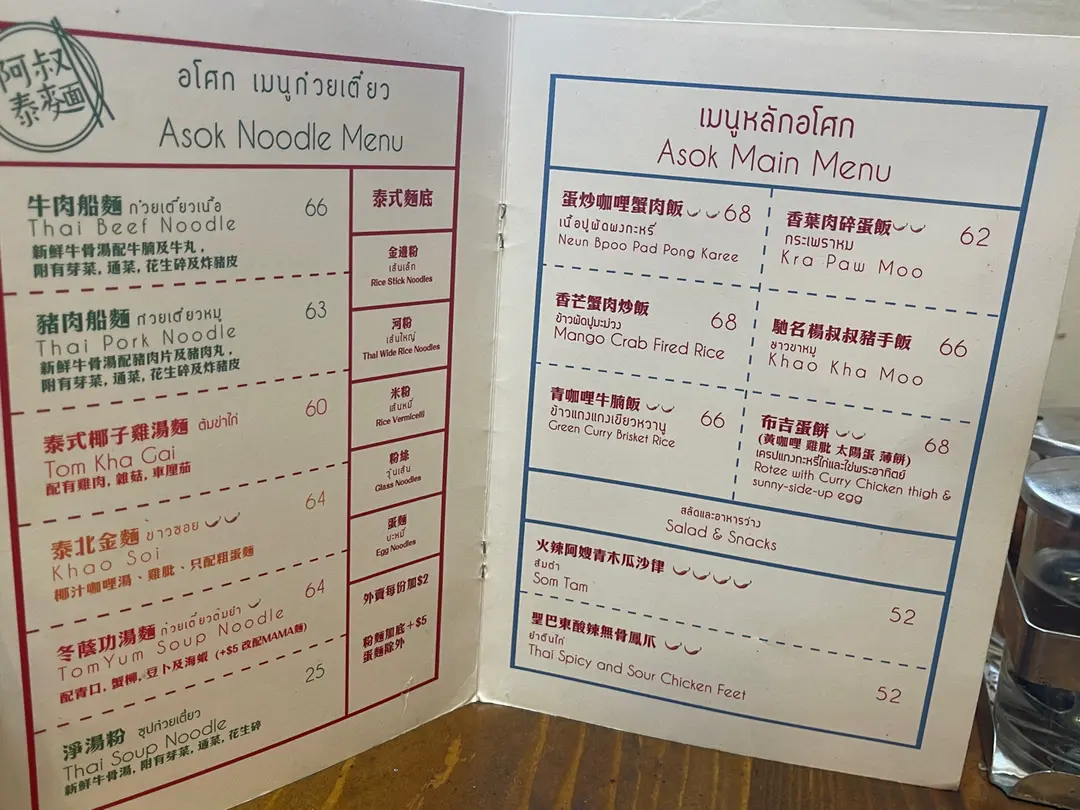 阿叔
泰麵
อโศก เมนูก๋วยเตี๋ยว
Asok Noodle Menu
牛肉船麵 ก๋วยเตี๋ยวเนื้อ 66
Thai Beef Noodle
新鮮牛骨湯配牛腩及牛丸,
附有芽菜, 通菜, 花生碎及炸豬皮
豬肉船麵 ก๋วยเตี๋ยวหมู 63
Thai Pork Noodle
新鮮牛骨湯配豬肉片及豬肉丸,
附有芽菜, 通菜, 花生碎及炸豬皮
泰式椰子雞湯麵 ต้มข่าไก่ 60
Tom Kha Gai
配有雞肉, 雜菇, 車厘茄
泰北金麵 ข้าวซอย 64
Khao Soi
椰汁咖喱湯、雞肶、只配粗蛋麵
冬蔭功湯麵 ก๋วยเตี๋ยวต้มยำ 64
TomYum Soup Noodle
配青口, 蟹柳, 豆卜及海蝦 (+$5 改配MAMA麵)
淨湯粉 ซุปก๋วยเตี๋ยว 25
Thai Soup Noodle
新鮮牛骨湯, 附有芽菜, 通菜, 花生碎
泰式麵底
金邊粉
เส้นเล็ก
Rice Stick Noodles
河粉
เส้นใหญ่
Thai Wide Rice Noodles
米粉
เส้นหมี่
Rice Vermicelli
粉絲
วุ้นเส้น
Glass Noodles
蛋麵
บะหมี่
Egg Noodles
外賣每份加$2
粉麵加底+$5
蛋麵除外
เมนูหลักอโศก
Asok Main Menu
蛋炒咖喱蟹肉飯 68
เนื้อปูผัดผงกะหรี่
Neun Bpoo Pad Pong Karee
香葉肉碎蛋飯 62
กระเพราหม
Kra Paw Moo
香芒蟹肉炒飯 68
ข้าวผัดปูมะม่วง
Mango Crab Fired Rice
馳名楊叔叔豬手飯 66
ขาวขาหมู
Khao Kha Moo
青咖喱牛腩飯 66
ข้าวแกงแกงเขียวหวานู
Green Curry Brisket Rice
布吉蛋餅 68
(黃咖喱 雞肶 太陽蛋 薄餅)
เครปแกงกะหรี่ไก่และไข่พระอาทิตย์
Rotee with Curry Chicken thigh &
sunny-side-up egg
สลัดและอาหารว่าง
Salad & Snacks
火辣阿嫂青木瓜沙律 52
ส้มตำ
Som Tam
聖巴東酸辣無骨鳳爪 52
ยำตีนไก่
Thai Spicy and Sour Chicken Feet